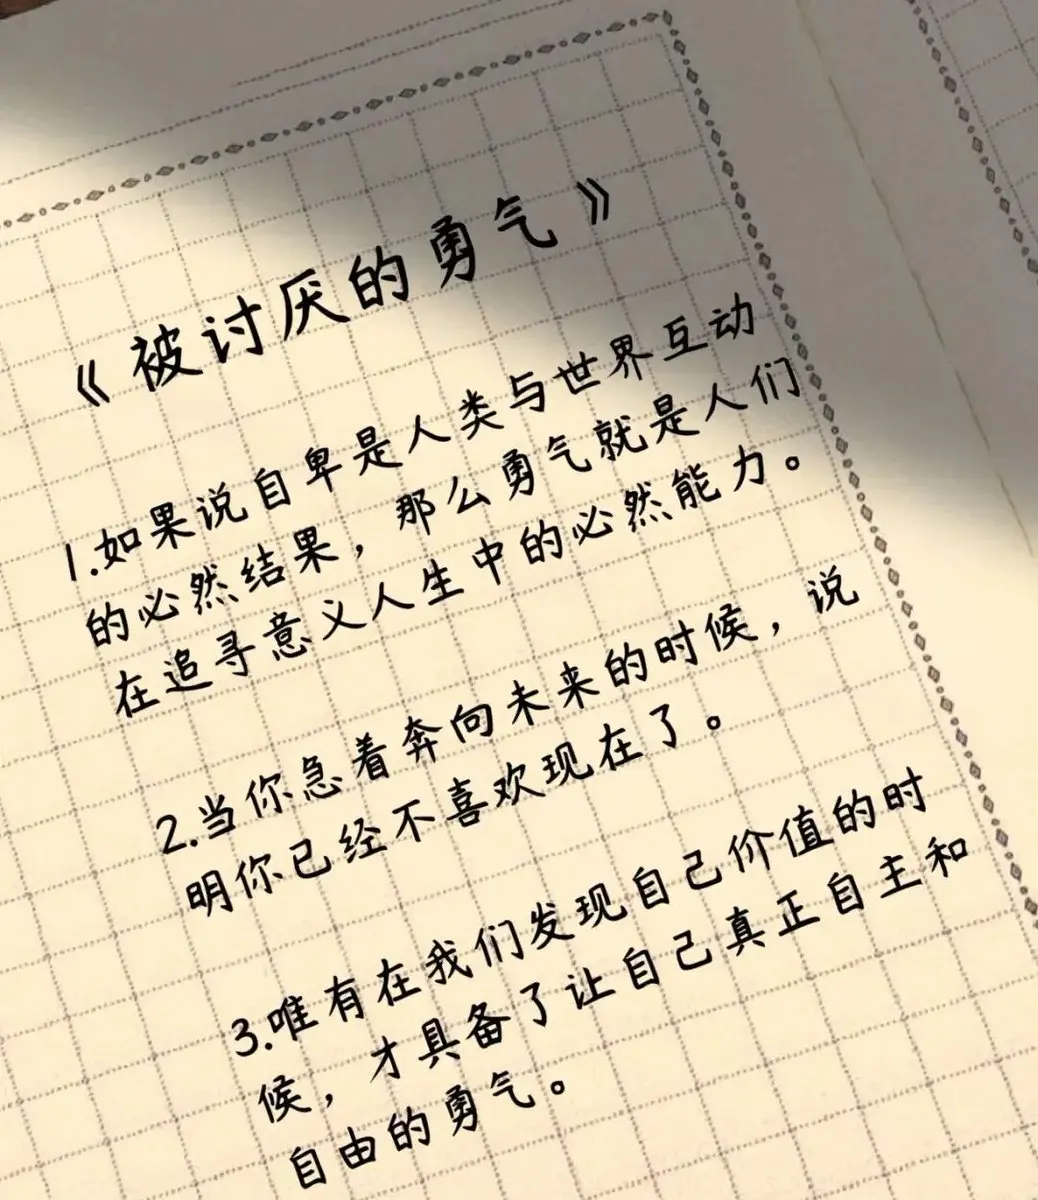 《被讨厌的勇气》
1.如果说自卑是人类与世界互动
的必然结果，那么勇气就是人们
在追寻意义人生中的必然能力。
2.当你急着奔向未来的时候，说
明你已经不喜欢现在了。
3.唯有在我们发现自己价值的时
候，才具备了让自己真正自主和
自由的勇气。